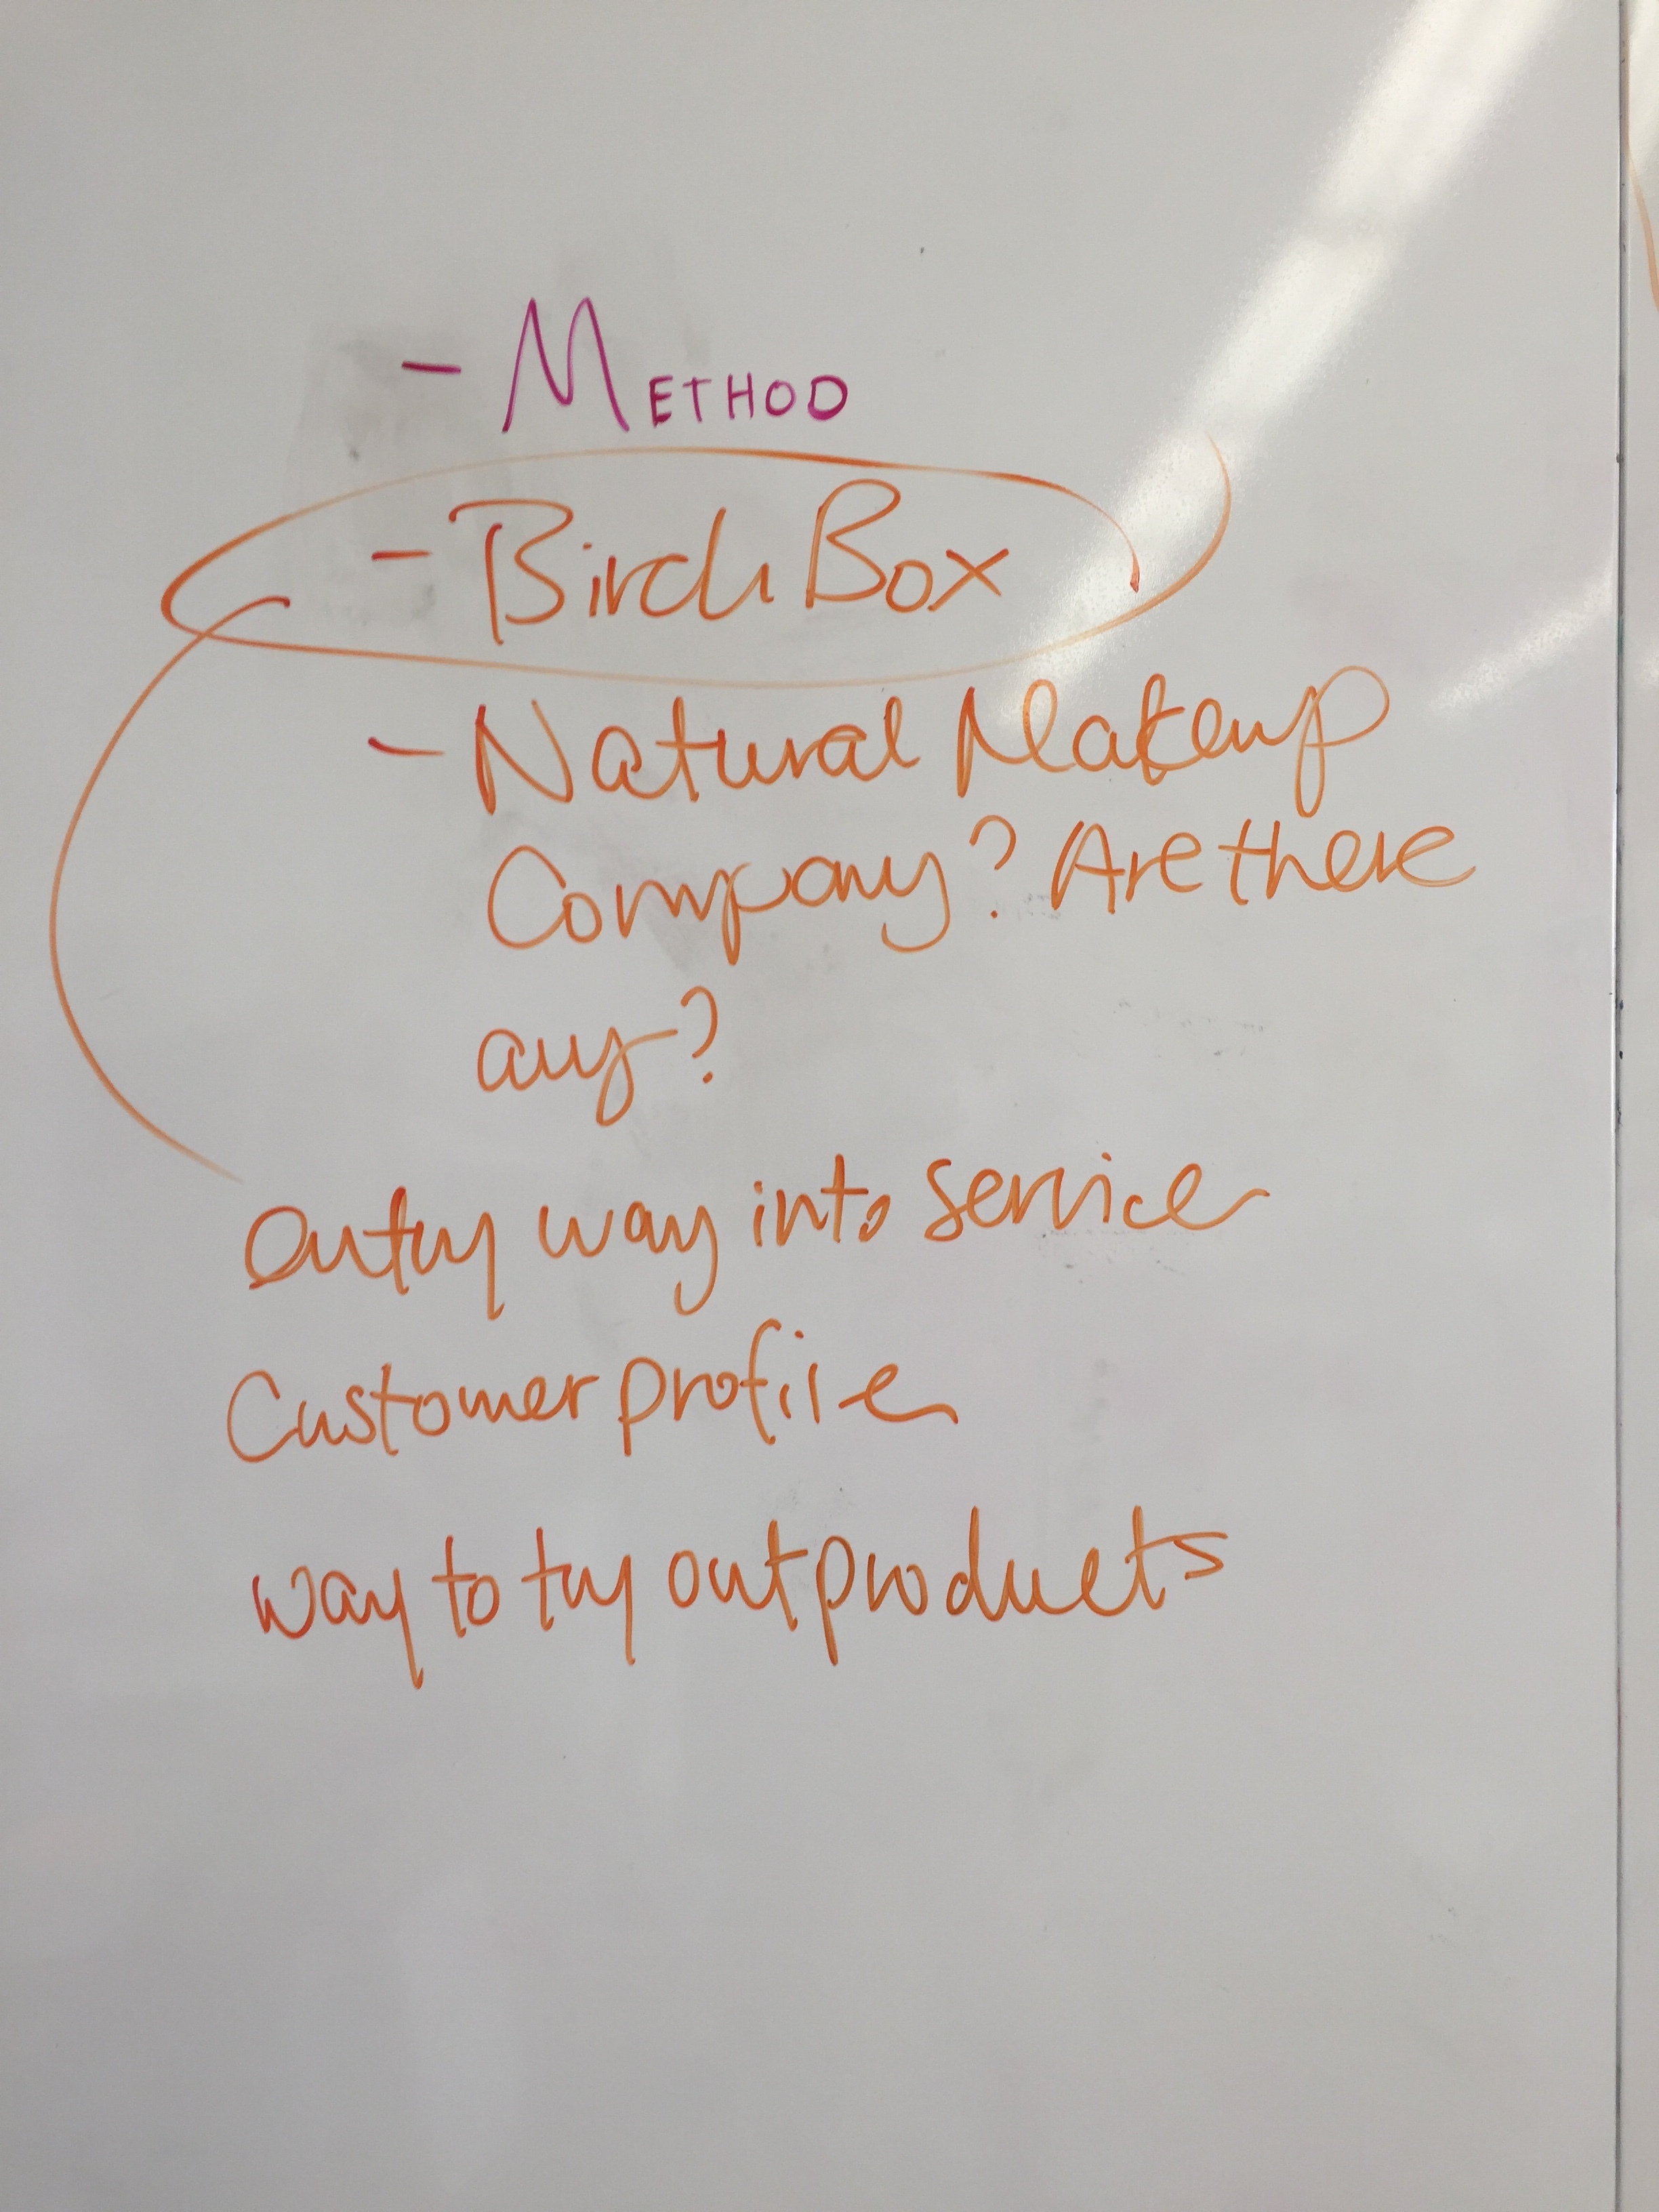 - METHOD
- Birch Box
- Natural Makeup
Company? Are there
any?
entry way into service
Customer profile
way to try out products